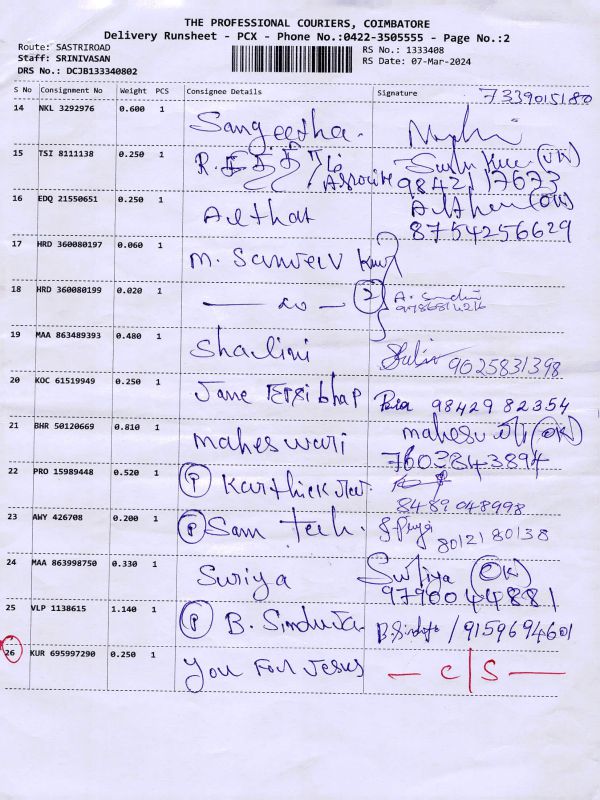 THE PROFESSIONAL COURIERS, COIMBATORE
Delivery Runsheet - PCX - Phone No.:0422-3505555 - Page No.:2
Route: SASTRIROAD
Staff: SRINIVASAN
DRS No.: DCJB133340802
RS No.: 1333408
RS Date: 07-Mar-2024
S No Consignment No Weight PCS Consignee Details Signature
7339015180
14 NKL 3292976 0.600 1 Sangeetha.
15 TSI 8111138 0.250 1 R. Associate (OK)
98421 17673
16 EDQ 21550651 0.250 1 (OK)
8754256629
17 HRD 360080197 0.060 1 M. Sanjeev
18 HRD 360080199 0.020 1 — do — 2 A.
9786814216
19 MAA 863489393 0.480 1 Shalini 9025831398
20 KOC 61519949 0.250 1 Jane 98429 82354
21 BHR 50120669 0.810 1 maheswari (OK)
7602843894
22 PRO 15989448 0.520 1 P Karthick
8489048998
23 AWY 426708 0.200 1 P Sam Tech. S. Priya
80121 80138
24 MAA 863998750 0.330 1 Suriya Suriya (OK)
9790044881
25 VLP 1138615 1.140 1 P B. Sinduja B. / 9159694601
26 KUR 695997290 0.250 1 You For Jesus — C/S —